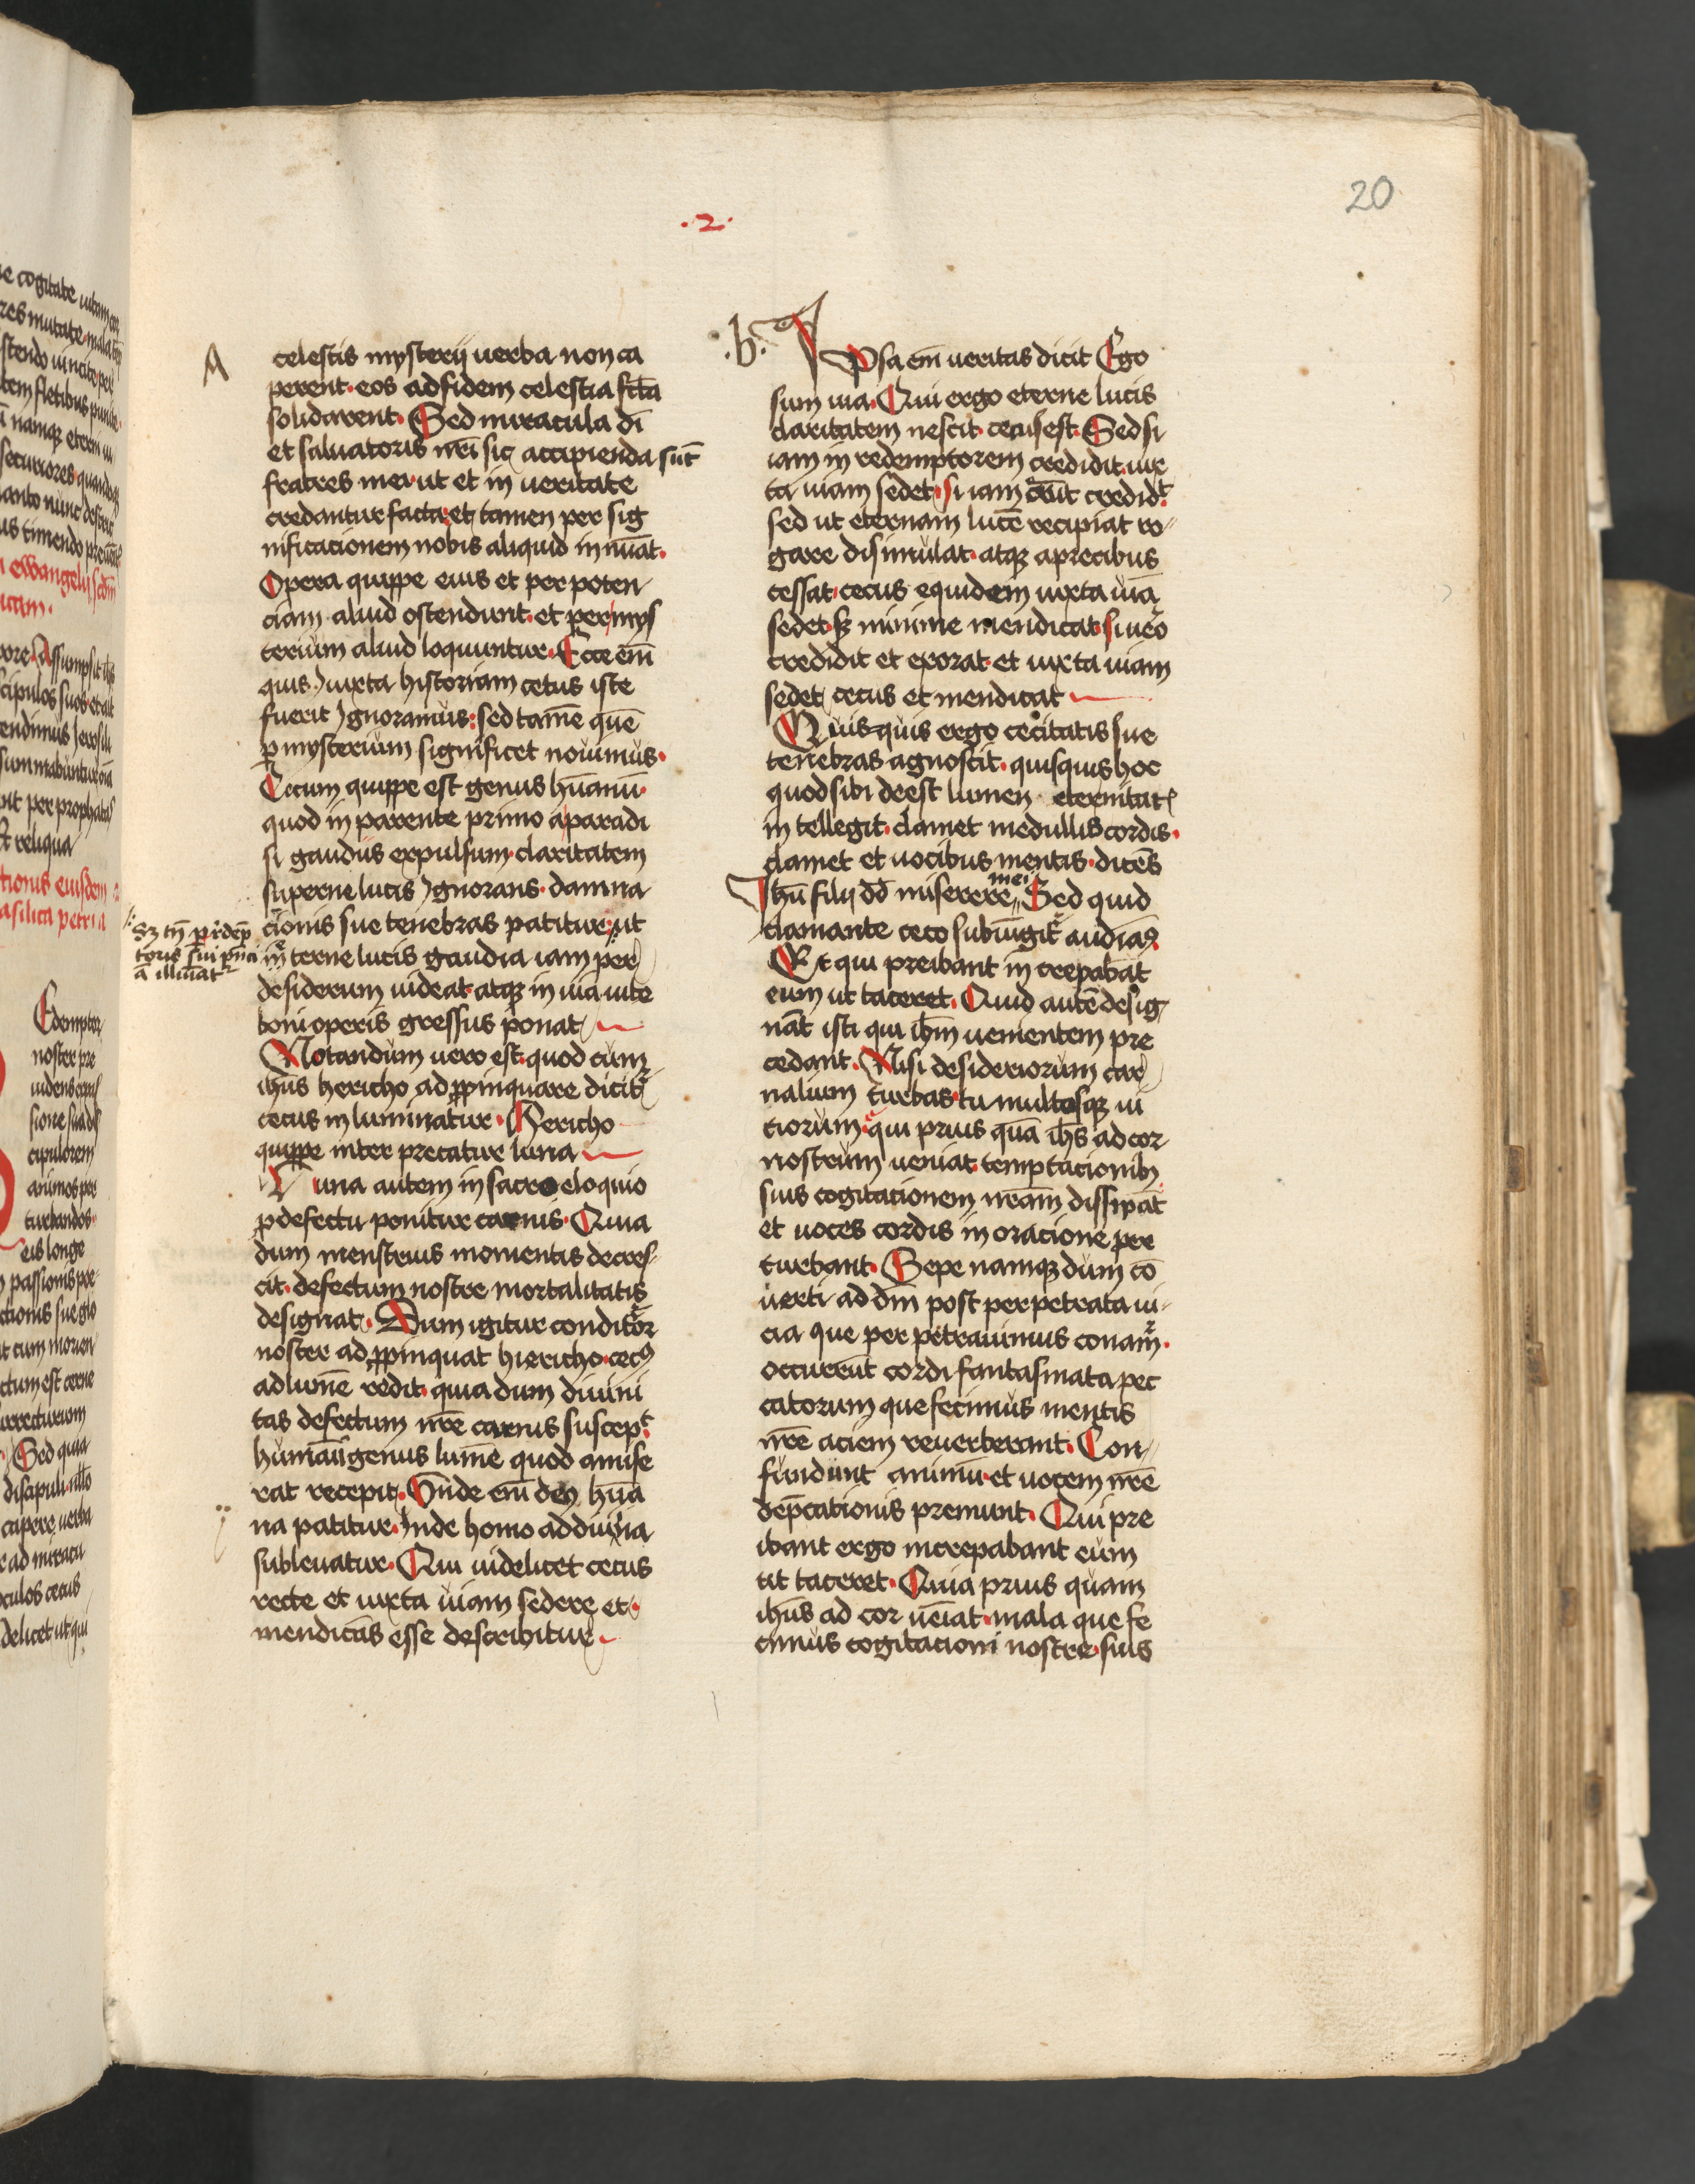 20
.2.
A
celestis mysterij uerba non ca
perent· eos ad fidem celestia fc̄ta
solidarent· Sed miracula dī
et saluatoris nr̄i sic accipienda sūt
fratres mei· ut et in ueritate
credantur facta· et tamen per sig
nificacionem nobis aliquid in nuāt·
Opera quippe eius et per poten
ciam aliud ostendunt· et per mys
terium aliud loquuntur· Ecce em̄
quis iuxta historiam cecus iste
fuerit ignoramus: sed tamē quē
ꝑ mysterium significet nouimus·
Cecum quippe est genus hūanū·
quod in parente primo a paradi
si gaudiis expulsum· claritatem
superne lucis ignorans· damna
cionis sue tenebras patitur· ut
in terne lucis gaudia iam per
desiderium uideat· atqꝫ in uia uite
boni operis gressus ponat
Notandum uero est· quod cum
ih̄us hericho ad ꝓpinquare dicit᷑
cecus in luminatur· Hericho
quippe inter precatur luna
Luna autem in sacro eloquio
ꝓ defectu ponitur carnis· Quia
dum menstruis momentis decres
cit· defectum nostre mortalitatis
designat· Dum igitur conditor
noster ad ꝓpinquat hiericho· cecꝰ
ad lumē redit· quia dum diuini
tas defectum nr̄e carnis suscepͭ·
humanū genus lumē quod amise
rat recepit· Vnde em̄ deꝰ hūa
na patitur· Inde homo ad diuina
subleuatur· Qui uidelicet cecus
recte et iuxta uiam sedere et·
mendicās esse describitur·
Sꝫ tn̄ ꝑ redēp
toris sui pn̄ci
ā illūat᷑
.b.
Ipsa em̄ ueritas dicit Ego
sum uia· Qui ergo eterne lucis
claritatem nescit· cecus est· Sed si
iam in redemptorem credidit· iux
ta uiam sedet· si iam credidͭ·
sed ut eternam lucē recipiat ro
gare disimulat· atqꝫ a precibus
cessat· cecus equidem iuxta uiā
sedet· sꝫ minime mendicat· si ūo
credidit et exorat· et iuxta uiam
sedet cecus et mendicat
Quisquis ergo cecitatis sue
tenebras agnoscit· quisquis hoc
quod sibi deest lumen eternitatꝭ
in tellegit· clamet medullis cordis·
clamet et uocibus mentis· dicēs
Ihū fili dd̄ miserere mei Sed quid
clamante ceco subiungit᷑ audiaꝰ
Et qui preibant in crepabāt
eum ut taceret· Quid autē desig
nāt isti qui ih̄m uenientem pre
cedant· Nisi desideriorum car
nalium turbas· tu multosqꝫ ui
ciorum· qui prius quā ih̄s ad cor
nostrum ueniat· temptacionibꝫ
suis cogitacionem nr̄am dissipāt
et uoces cordis in oracione per
turbant· Sepe namqꝫ dum cō
uerti ad dm̄ post perpetrata ui
cia que per petrauimus conam᷑·
occurrūt cordi fantasmata pec
catorum que fecimus mentis
nr̄e aciem reuerberant· Con
fundunt animū· et uocem nr̄e
dep̄cationis premunt· Qui pre
ibant ergo increpabant eum
ut taceret· Quia prius quam
ih̄us ad cor ueniat· mala que fe
cimus cogitacioni nostre· suis